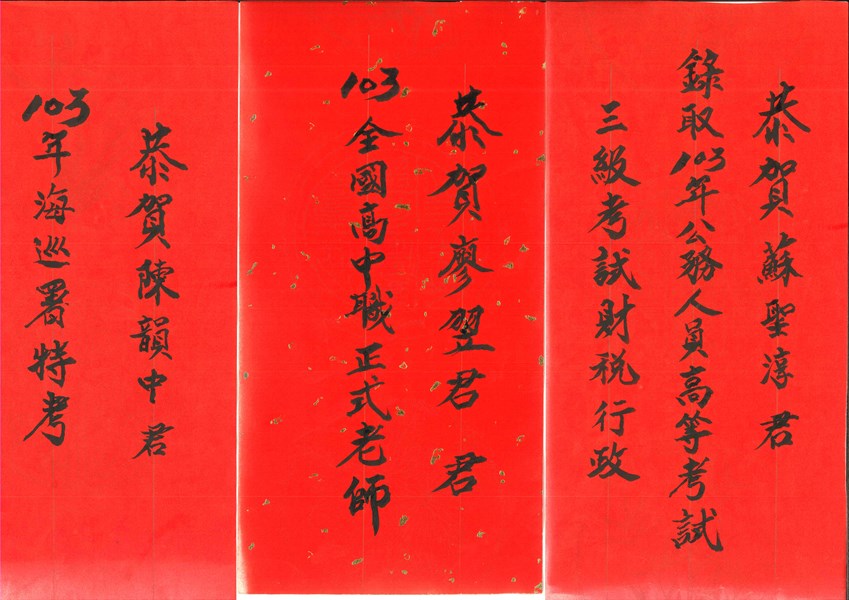 恭賀蘇聖淳君
錄取103年公務人員高等考試
三級考試財稅行政
恭賀廖翌君 君
103全國高中職正式老師
恭賀陳韻中君
103年海巡署特考